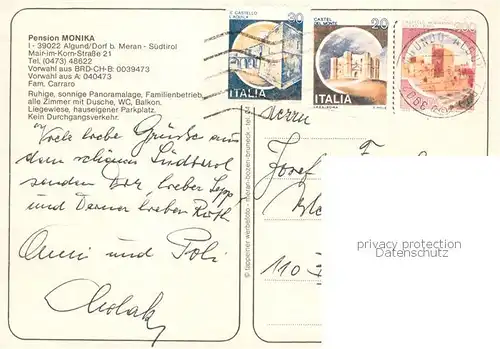 Pension MONIKA
I - 39022 Algund/Dorf b. Meran - Südtirol
Mair-im-Korn-Straße 21
Tel. (0473) 48622
Vorwahl aus BRD-CH-B: 0039473
Vorwahl aus A: 040473
Fam. Carraro
Ruhige, sonnige Panoramalage, Familienbetrieb,
alle Zimmer mit Dusche, WC, Balkon.
Liegewiese, hauseigener Parkplatz.
Kein Durchgangsverkehr.
30
ITALIA
CASTEL
DEL MONTE
20
ITALIA
Viele liebe Grüße aus
dem schönen Südtirol
senden Dir, lieber Sepp
und Deiner lieben Ruth
und
Herrn
Josef
110
© tappeiner werbefoto - meran-bozen-bruneck - tel.
privacy protection
Datenschutz